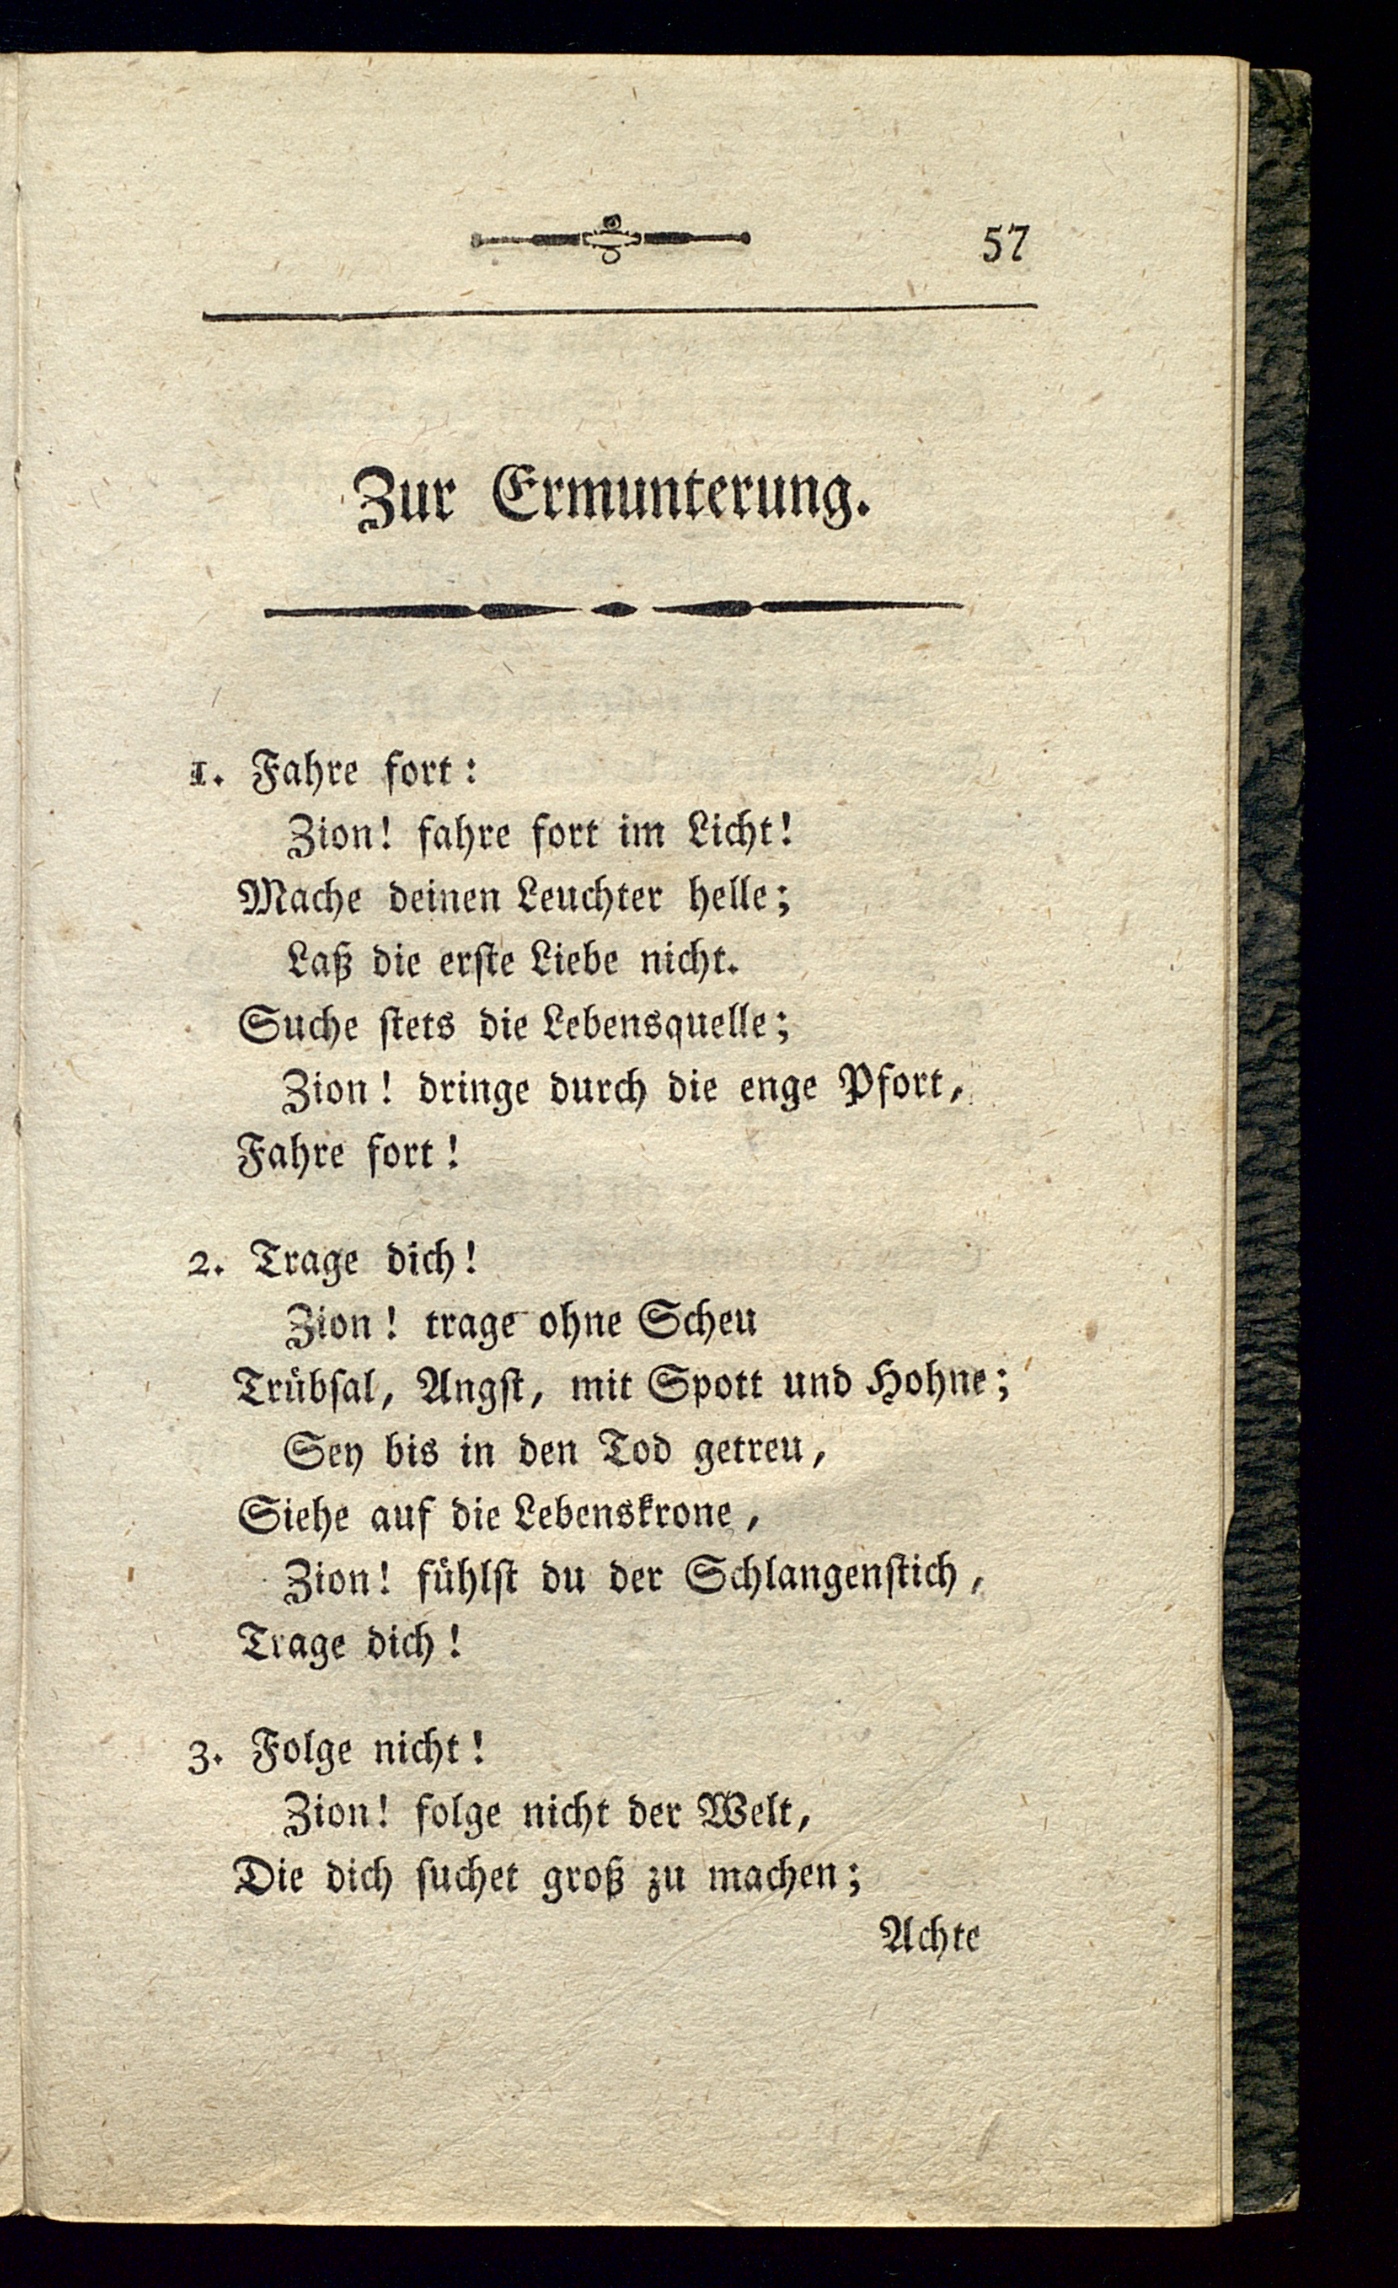 57
Zur Ermunterung.
1. Fahre fort:
Zion! fahre fort im Licht!
Mache deinen Leuchter helle;
Laß die erste Liebe nicht.
Suche stets die Lebensquelle;
Zion! dringe durch die enge Pfort,
Fahre fort!
2. Trage dich!
Zion! trage ohne Scheu
Trübsal, Angst, mit Spott und Hohne;
Sey bis in den Tod getreu,
Siehe auf die Lebenskrone,
Zion! fühlst du der Schlangenstich,
Trage dich!
3. Folge nicht!
Zion! folge nicht der Welt,
Die dich suchet groß zu machen;
Achte